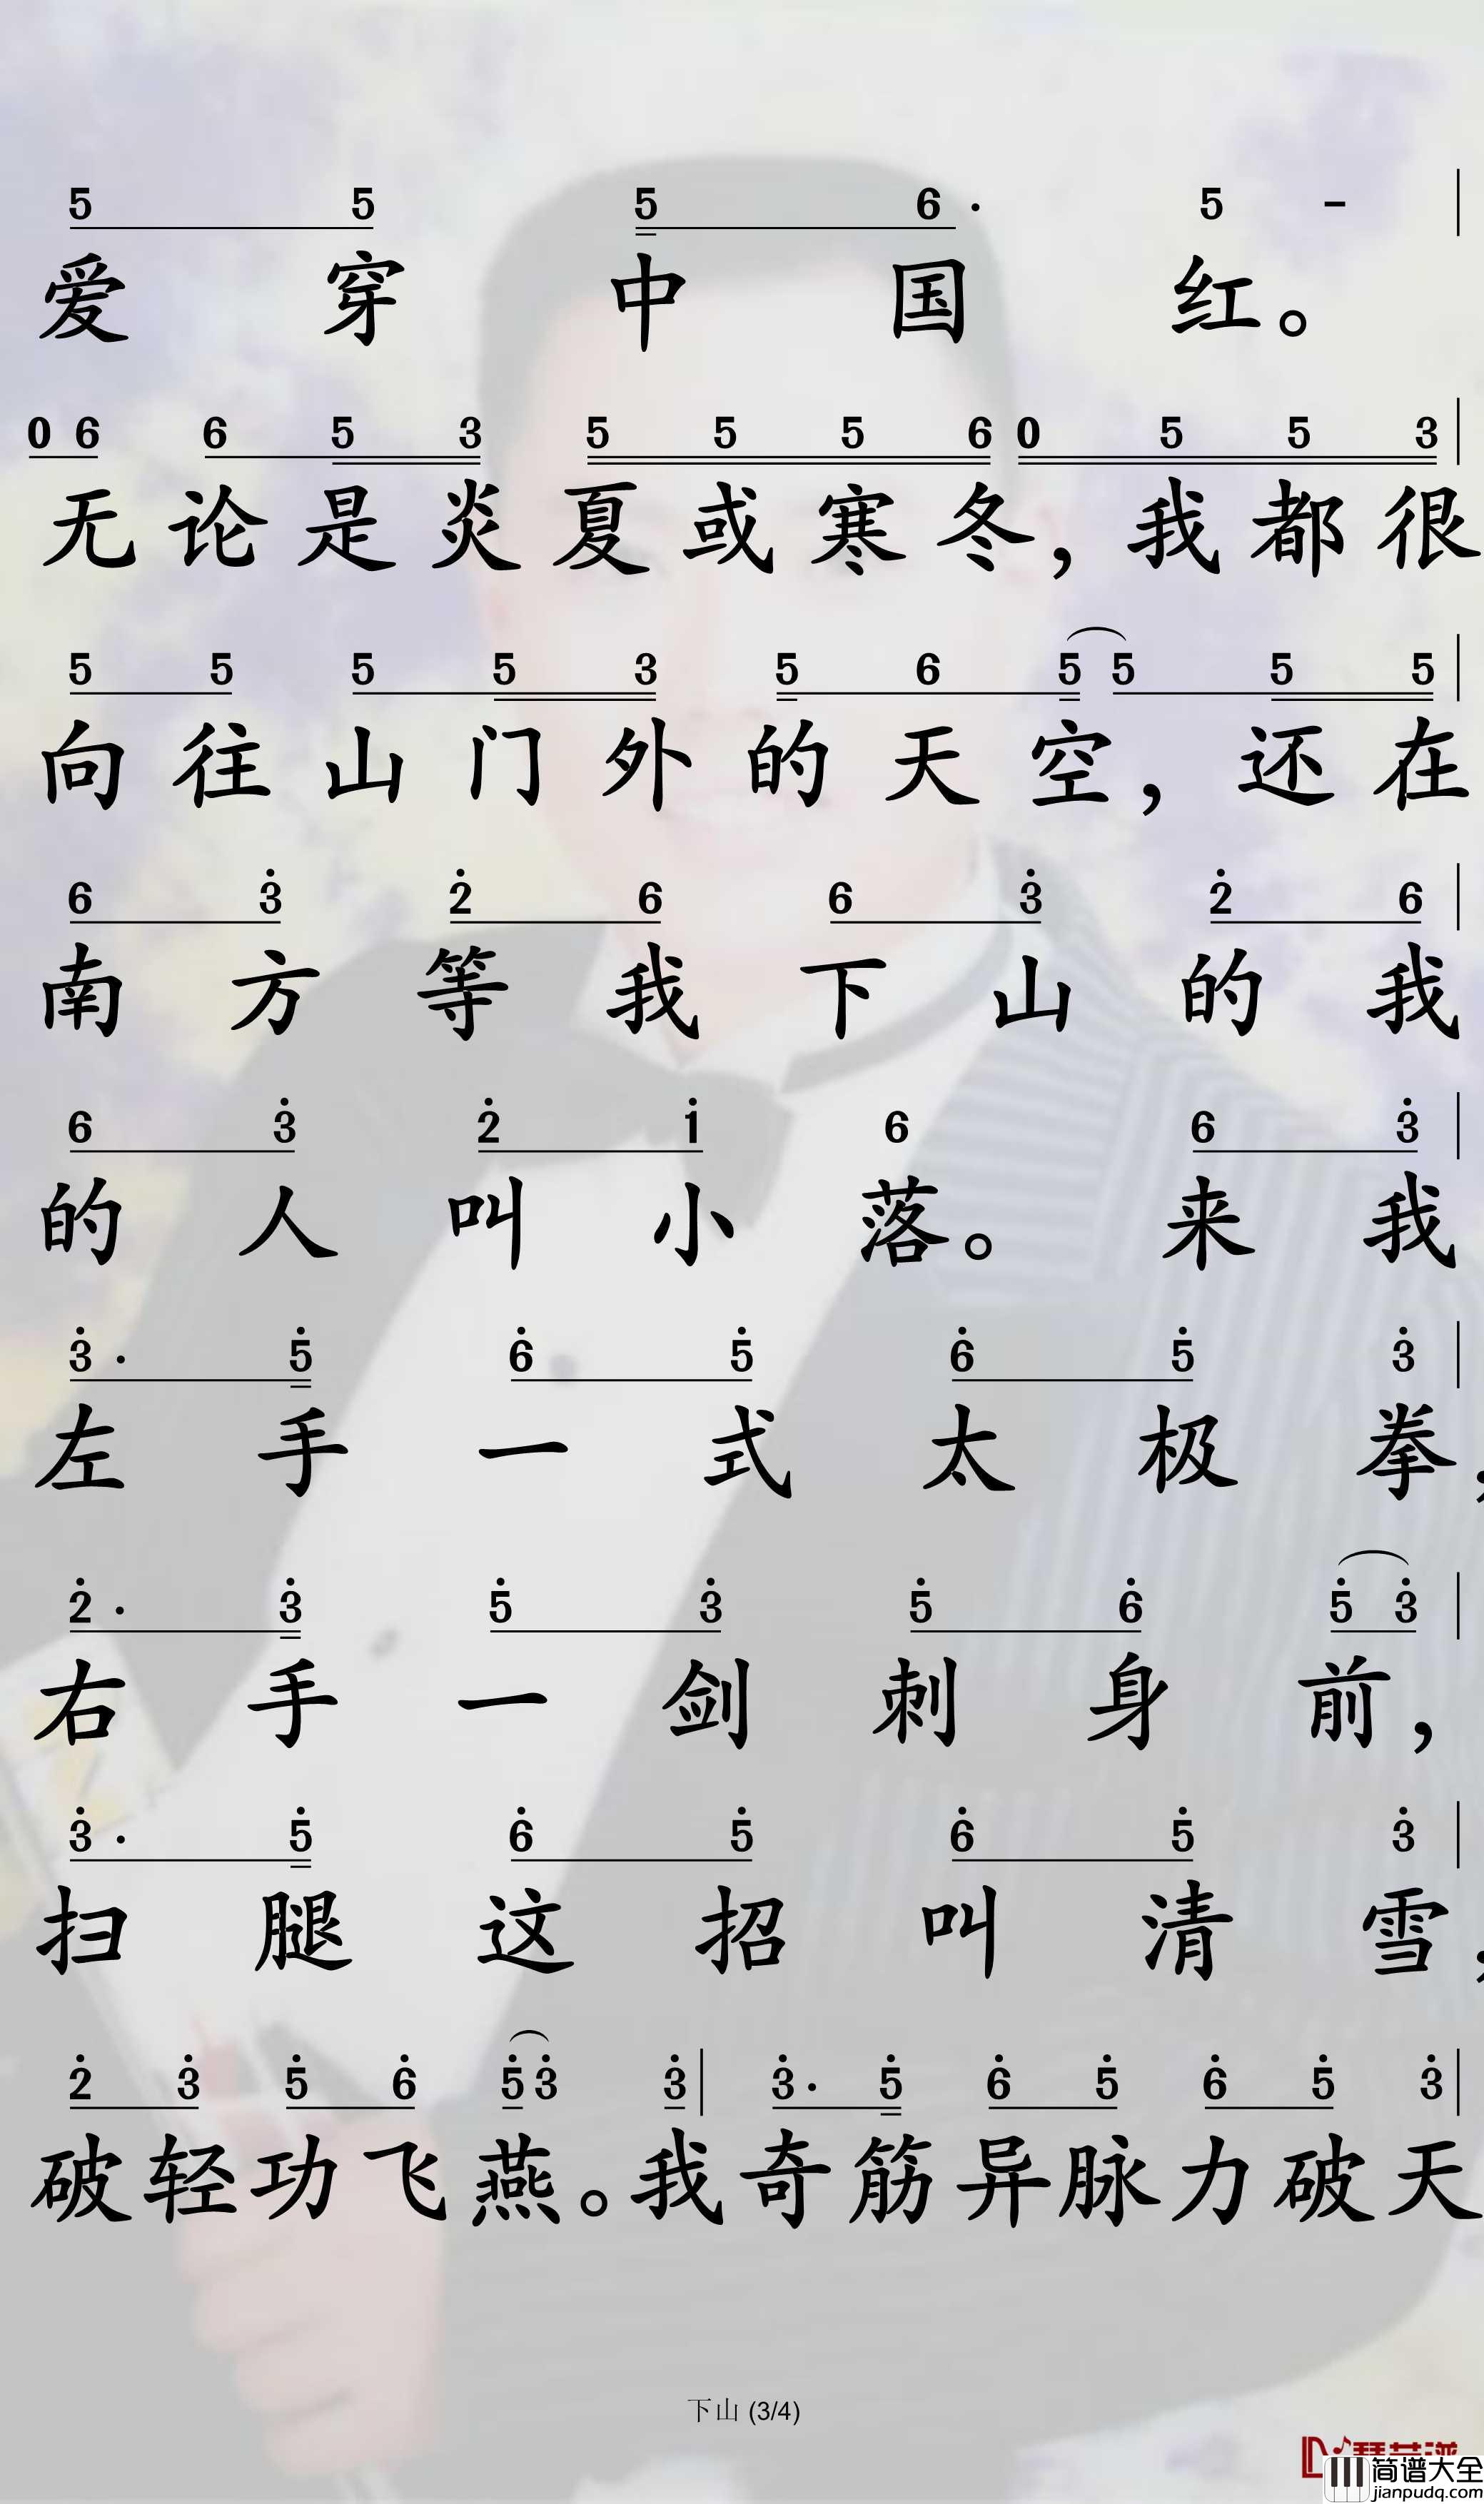 5 5 5 6· 5 -
爱穿中国红。
0 6 6 5 3 5 5 5 6 0 5 5 3
无论是炎夏或寒冬，我都很
5 5 5 5 3 5 6 5 5 5 5
向往山门外的天空，还在
6 3 2 6 6 3 2 6
南方等我下山的我
6 3 2 1 6 6 3
的人叫小落。来我
3· 5 6 5 6 5 3
左手一式太极拳，
2· 3 5 3 5 6 5 3
右手一剑刺身前，
3· 5 6 5 6 5 3
扫腿这招叫清雪，
2 3 5 6 5 3 3 3· 5 6 5 6 5 3
破轻功飞燕。我奇筋异脉力破天
下山 (3/4)
简谱大全
jianpudq.com